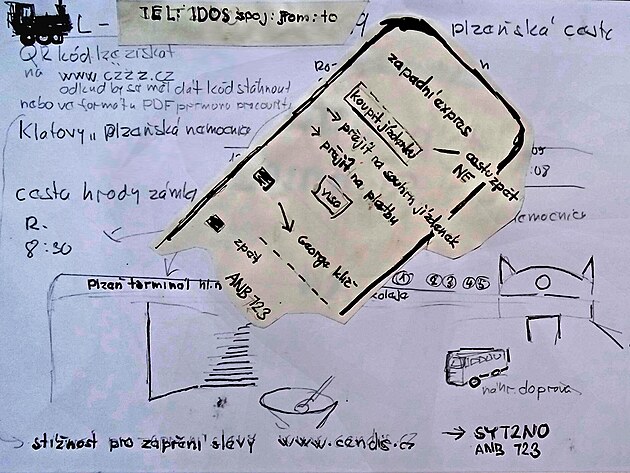 L - TELTIDOS spoj: rom: to
plzeňská cesta
QR kód lze získat
na www.czzz.cz
odkud by se měl dát kód stáhnout
nebo ve formátu PDF
Klatovy,, plzeňská nemocnice
cesta hrody zámka
R.
8:30
západní expres
koupit jízdenku
cesta zpět
NE
→ přejít na souhrn jízdenek
→ přejít na platbu
visa
George klíč
zpět
ANB 723
:08
emocnice
plzeň terminál hl.n
1 2 3 4 5
náhr. doprava
stížnost pro zapření slávy www.cendis.cz
→ SYTZNO
ANB 723